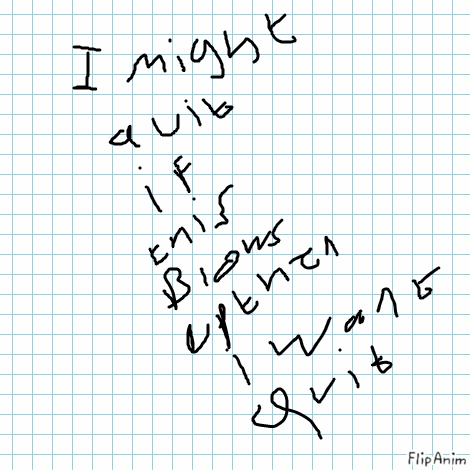 I might
quit
if
this
Blows
up then
i Wont
Quit
FlipAnim